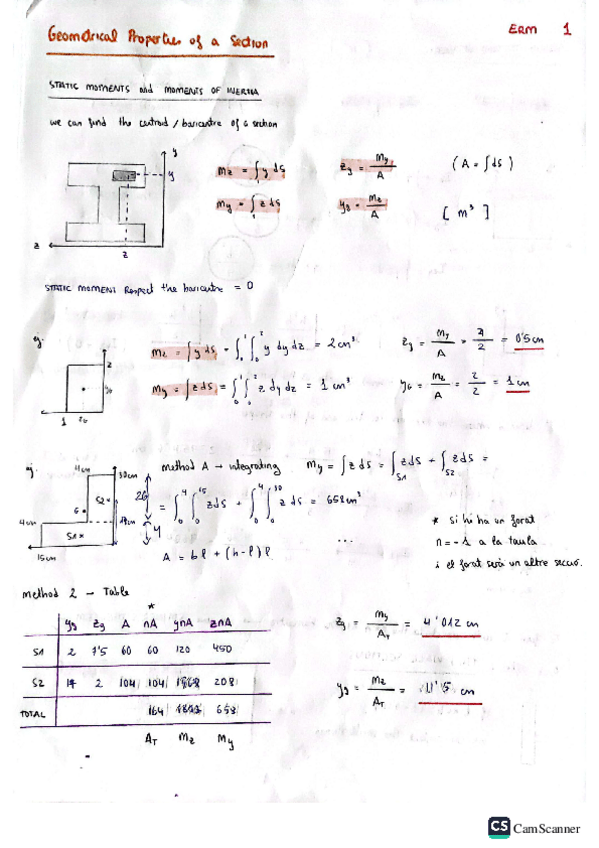 Geometrical Properties of a Section
ERM 1
STATIC MOMENTS and MOMENTS OF INERTIA
we can find the centroid / baricentre of a section
y
y
z
z
Mz = ∫ y dS
zg = My / A
(A = ∫ dS)
My = ∫ z dS
yg = Mz / A
[m³]
STATIC MOMENT Respect the baricentre = 0
eg.
2
1
zG
Mz = ∫ y dS = ∫₀¹ ∫₀² y dy dz = 2 cm³
= 0'5 cm
My = ∫ z dS = ∫₀¹ ∫₀² z dy dz = 1 cm³
yG = Mz / A = 2 / 2 = 1 cm
eg.
4cm
30cm
S2
G
4cm
S1
15cm
26
4
method A → integrating
My = ∫ z dS = ∫S1 z dS + ∫S2 z dS =
z dS = 658 cm³
A = b l + (h - l) l
...
* si hi ha un forat
n = -1 a la taula
i el forat serà un altre secció.
method 2 - Table
*
yg zg A nA ynA znA
S1 2 7'5 60 60 120 450
S2 17 2 104 104 208
TOTAL 164 658
AT Mz My
zg = My / AT = 4'012 cm
yg = Mz / AT = 11'5 cm
CS CamScanner